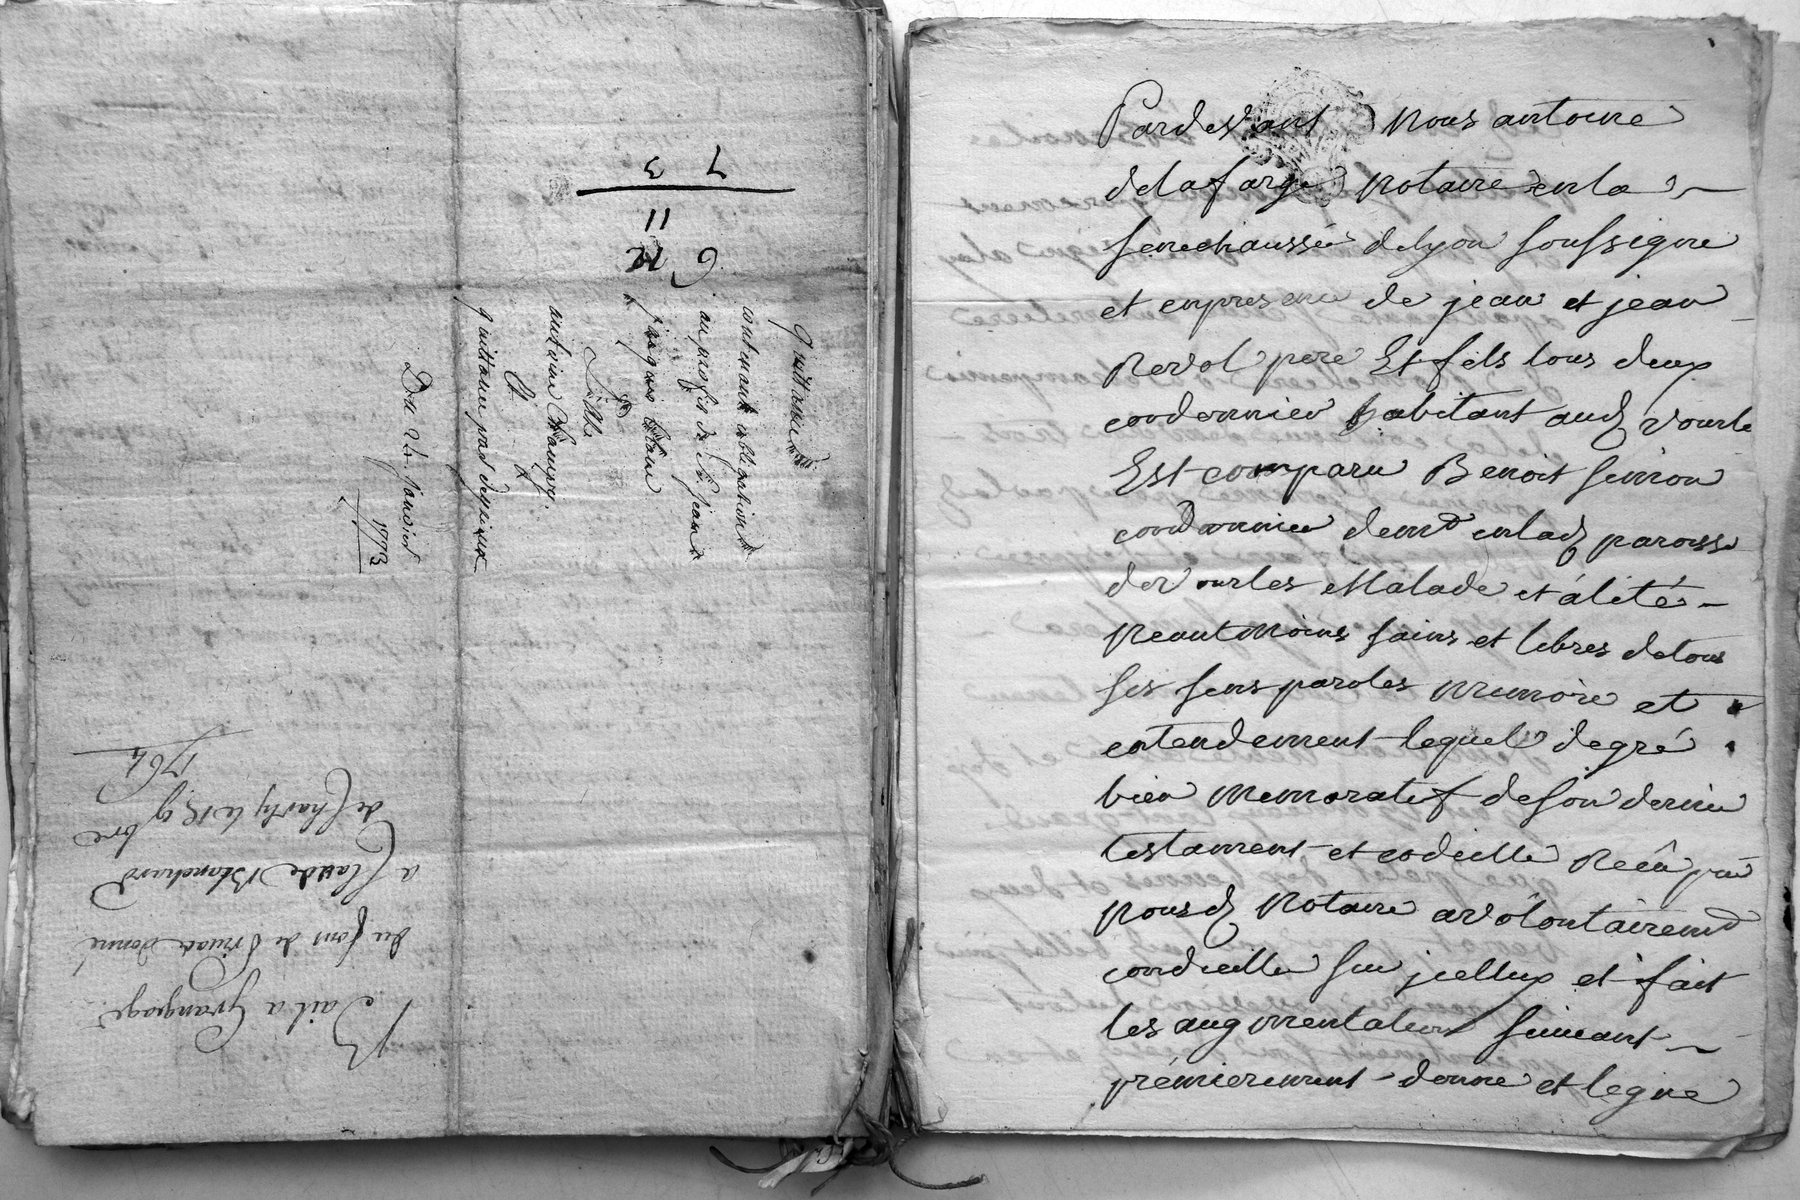 7 3
11
6 12
quittance
contenant obligation
au profit de Sr. Jean
Lille
antoine
Et
quittance par dessus
Du 24 janvier
1773
Bail a Grangeage
du fons de donné
a Claude Blanchard
de Charly le 19 9bre
1764
Pardevant Nous antoine
delafarge Notaire en la
senechaussée delyon soussigne
et enpresence de jean et jean
Revol pere Et fils tous deux
cordonnier habitant aud vourle
Est comparu Benoit simon
cordonnier demt enlad paroisse
de vourles Malade et álité
Neantmoins sains et libres detous
ses sens paroles memoire et
entendement lequel degré
bien memoratif deson dernier
testament et codicille Recû par
Nousd Notaire avôlontairemt
condicille sur jcelluy et fait
les augmentations suivant
prémierement donne et legue